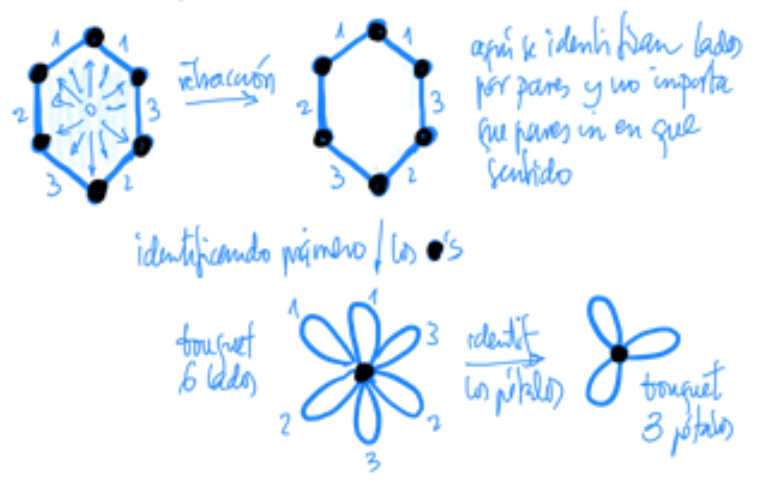 1 1
2 3
3 2
retracción
1 1
2 3
3 2
aquí se identifican lados
por pares y no importa
que pares ni en que
sentido
identificando primero los ●'s
bouquet
6 lados
1 1
3
2 2
3
identif
los pétalos
bouquet
3 pétalos